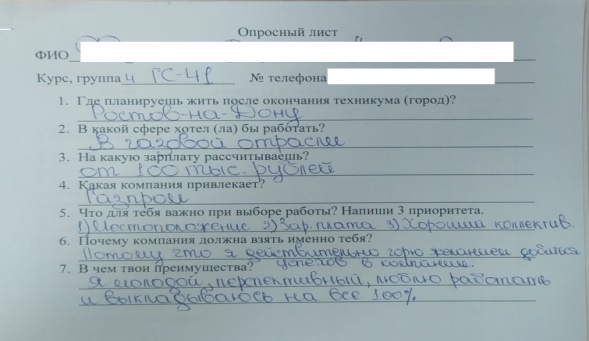 Опросный лист
ФИО
Курс, группа 4 ГС-41 № телефона
1. Где планируешь жить после окончания техникума (город)?
Ростов-на-Дону
2. В какой сфере хотел (ла) бы работать?
В газовой отрасли
3. На какую зарплату рассчитываешь?
от 100 тыс. рублей
4. Какая компания привлекает?
Газпром
5. Что для тебя важно при выборе работы? Напиши 3 приоритета.
1) Местоположение 2) Зар. плата 3) Хороший коллектив.
6. Почему компания должна взять именно тебя?
Потому что я действительно горю желанием добиться
успехов в компании.
7. В чем твои преимущества?
Я молодой, перспективный, люблю работать
и выкладываюсь на все 100%.